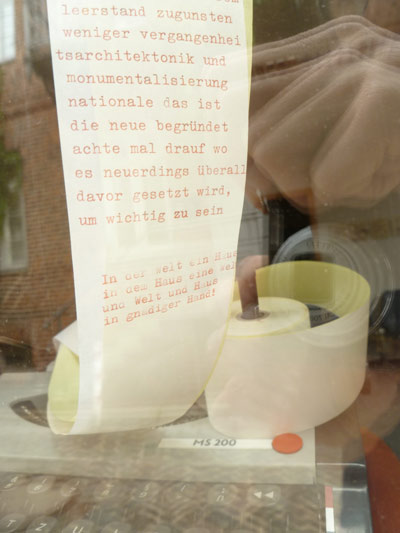 leerstand zugunsten
weniger vergangenhei
tsarchitektonik und
monumentalisierung
nationale das ist
die neue begründet
achte mal drauf wo
es neuerdings überall
davor gesetzt wird,
um wichtig zu sein
In der Welt ein Haus
in dem Haus eine Wel
und Welt und Haus
in gnädiger Hand!
MS 200